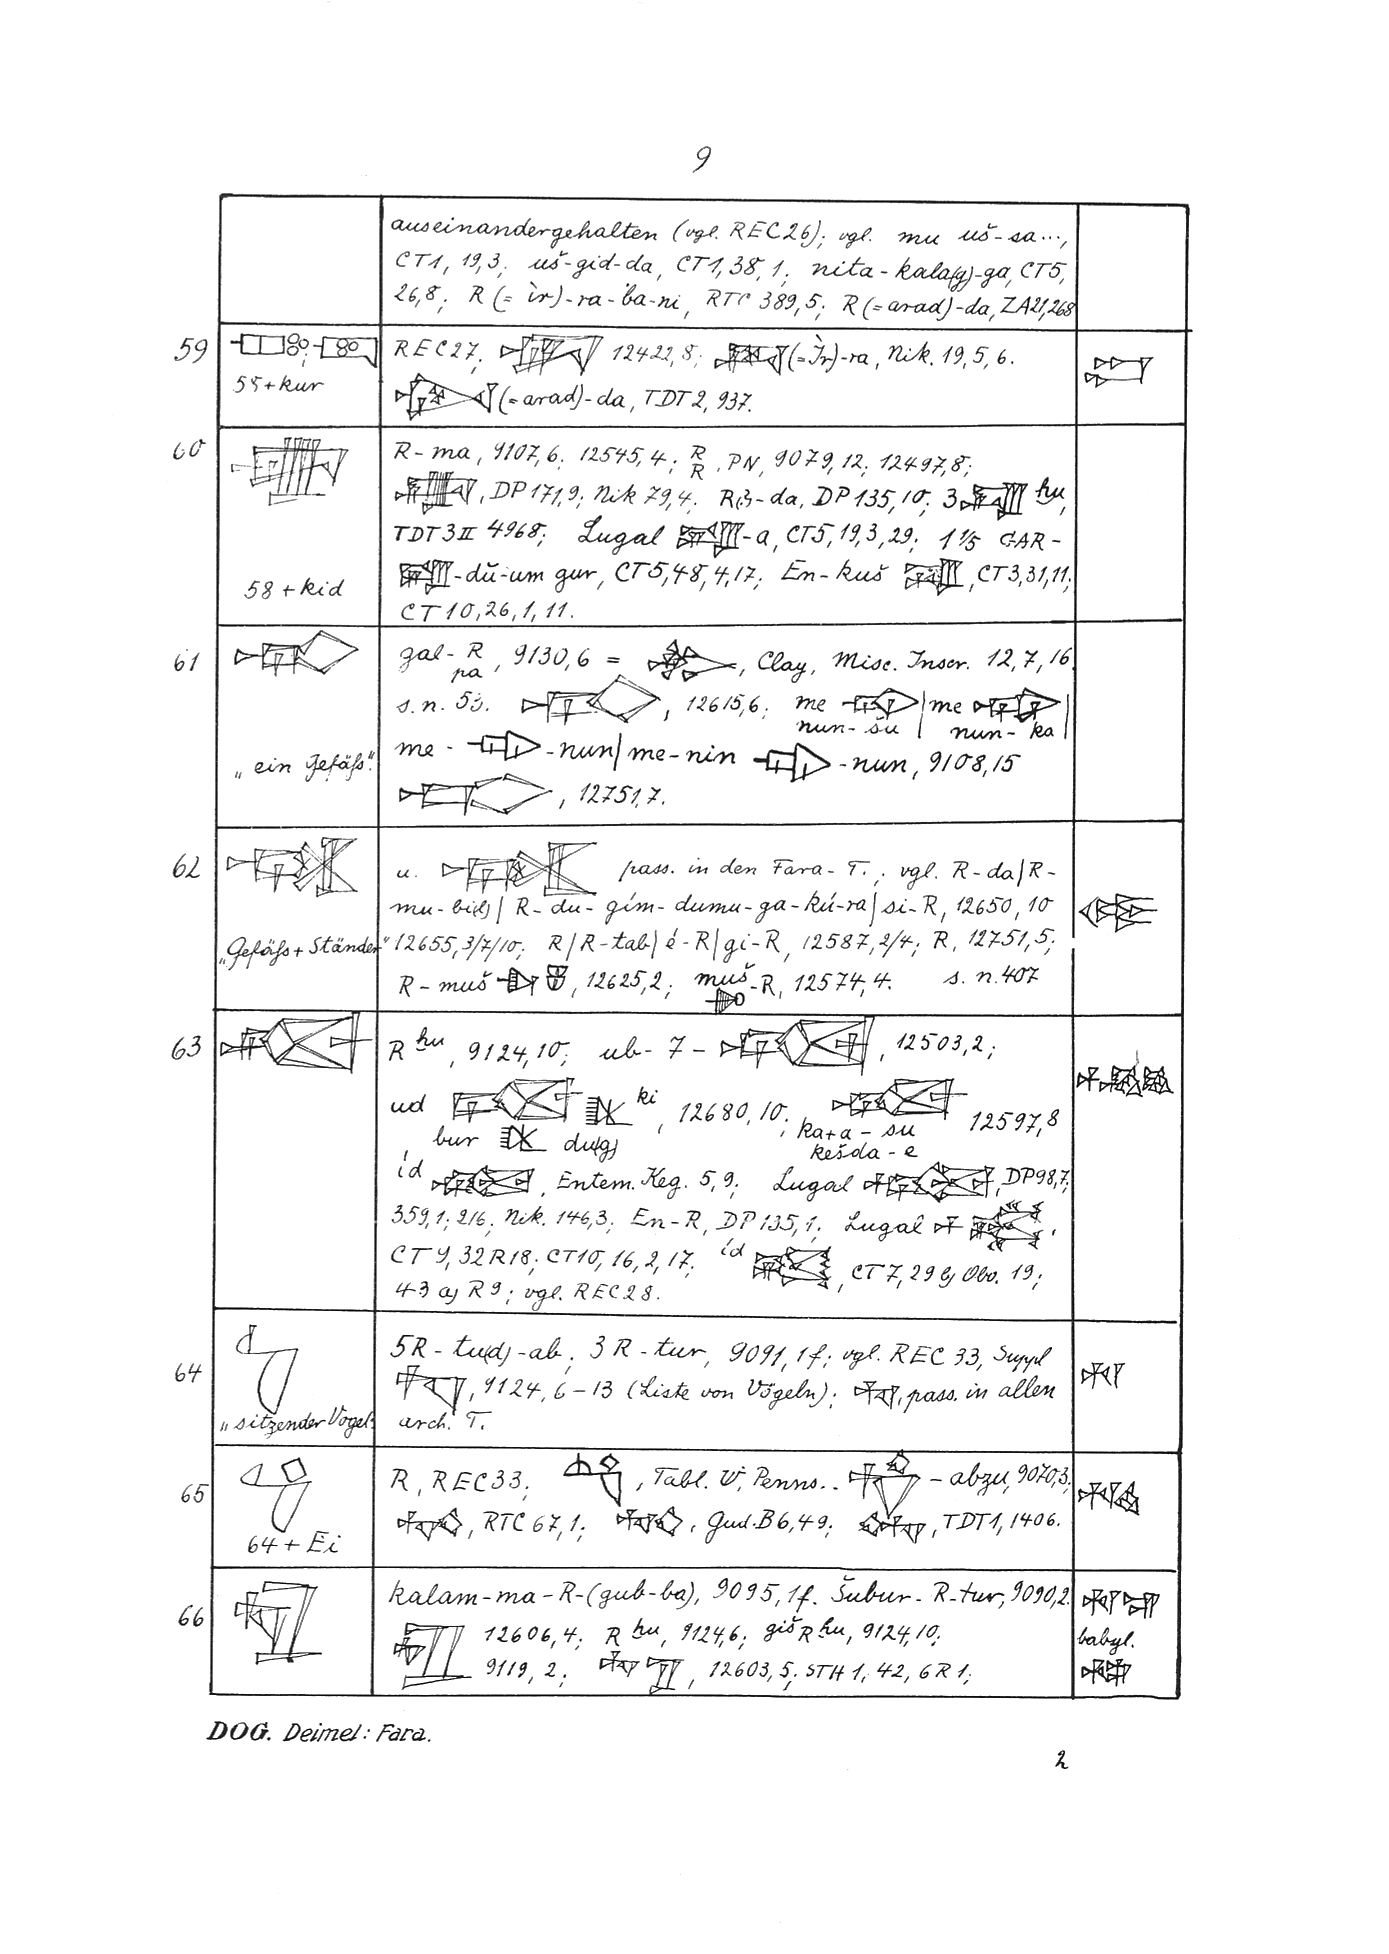 9
auseinandergehalten (vgl. REC 26); vgl. mu uš-sa...,
CT 1, 19, 3; uš-gid-da, CT 1, 38, 1; nita-kala(g)-ga, CT 5,
26, 8; R (= ìr)-ra-ba-ni, RTC 389, 5; R (= arad)-da, ZA 21, 268
59
55 + kur
REC 27; 12422, 8; (= Ìr)-ra, Nik. 19, 5, 6.
(= arad)-da, TDT 2, 937.
60
58 + kid
R-ma, 9107, 6; 12545, 4; R R, PN, 9079, 12; 12497, 8;
, DP 171, 9; Nik 79, 4. -da, DP 135, 10; 3 hu,
TDT 3 II 4968; Lugal -a, CT 5, 19, 3, 29; 1 1/5 GAR-
-dŭ-um gur, CT 5, 48, 4, 17; En-kuš , CT 3, 31, 11;
CT 10, 26, 1, 11.
61
„ein Gefäß“.
gal-R pa, 9130, 6 = , Clay, Misc. Inscr. 12, 7, 16
s. n. , 12615, 6; me nun-šu | me nun-ka |
me- -nun | me-nin -nun, 9108, 15
, 12751, 7.
62
„Gefäß + Ständer“
u. pass. in den Fara-T.; vgl. R-da | R-
mu-bi(d) | R-du-gím-dumu-ga-kú-ra | si-R, 12650, 10
12655, 3/7/10; R | R-tab | é-R | gi-R, 12587, 2/4; R, 12751, 5;
R-muš , 12625, 2; muš-R, 12574, 4. s. n. 407
63
R hu, 9124, 10; ub-7- , 12503, 2;
ud ki, 12680, 10; 12597, 8
bur du(g) ka+a-su
kešda-e
íd , Entem. Keg. 5, 9; Lugal , DP 98, 7;
359, 1; 216; Nik. 146, 3; En-R, DP 135, 1; Lugal ,
CT 9, 32 R 18; CT 10, 16, 2, 17; íd , CT 7, 29 b) Obv. 19;
43 a) R 9; vgl. REC 28.
64
„sitzender Vogel“
5 R-tu(d)-ab; 3 R-tur, 9091, 1 f; vgl. REC 33, Suppl
, 9124, 6-13 (Liste von Vögeln); , pass. in allen
arch. T.
65
64 + Ei
R, REC 33; , Tabl. W. Penns.. -abzu, 9070, 3;
, RTC 67, 1; , Gud. B 6, 49; , TDT 1, 1406.
66
kalam-ma-R-(gub-ba), 9095, 1 f. Šubur-R-tur, 9090, 2.
12606, 4; R hu, 9124, 6; giš R hu, 9124, 10;
9119, 2; , 12603, 5; STH 1, 42, 6 R 1;
babyl.
DOG. Deimel: Fara.
2